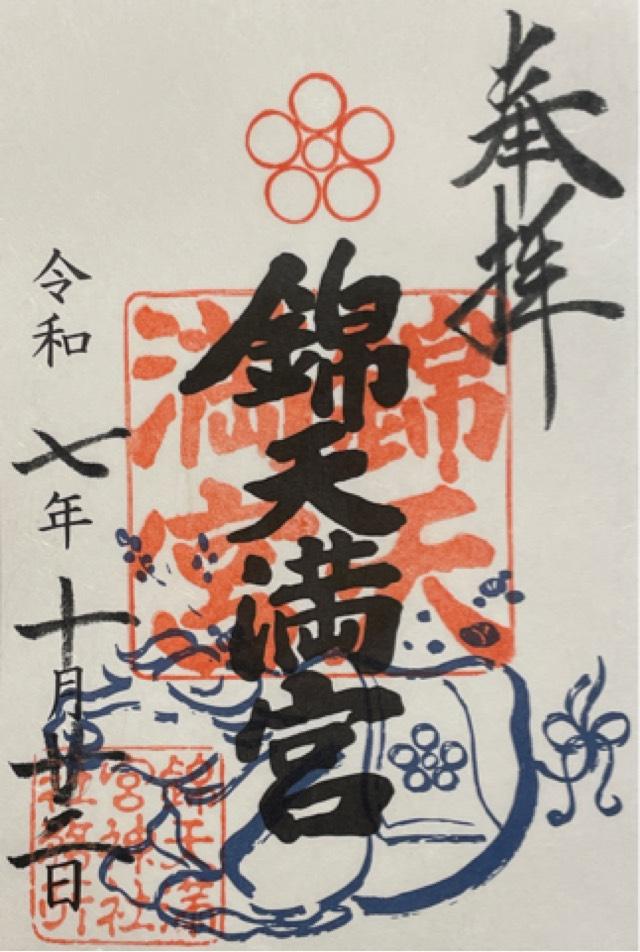 奉拝
錦天満宮
錦天満宮
令和七年十月廿三日
錦天満
宮神社
社務所